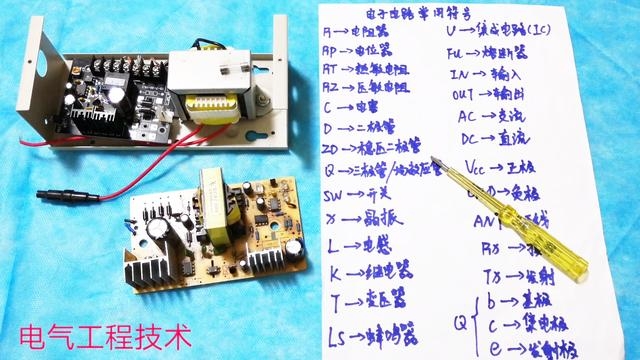 电子电路常用符号
R→电阻器
RP→电位器
RT→热敏电阻
RZ→压敏电阻
C→电容
D→二极管
ZD→稳压二极管
Q→三极管/场效应管
SW→开关
X→晶振
L→电感
K→继电器
T→变压器
LS→蜂鸣器
U→集成电路(IC)
FU→熔断器
IN→输入
OUT→输出
AC→交流
DC→直流
Vcc→正极
D→负极
AN 线
RX→接
TX→发射
Q
b→基极
c→集电极
e→发射极
电气工程技术